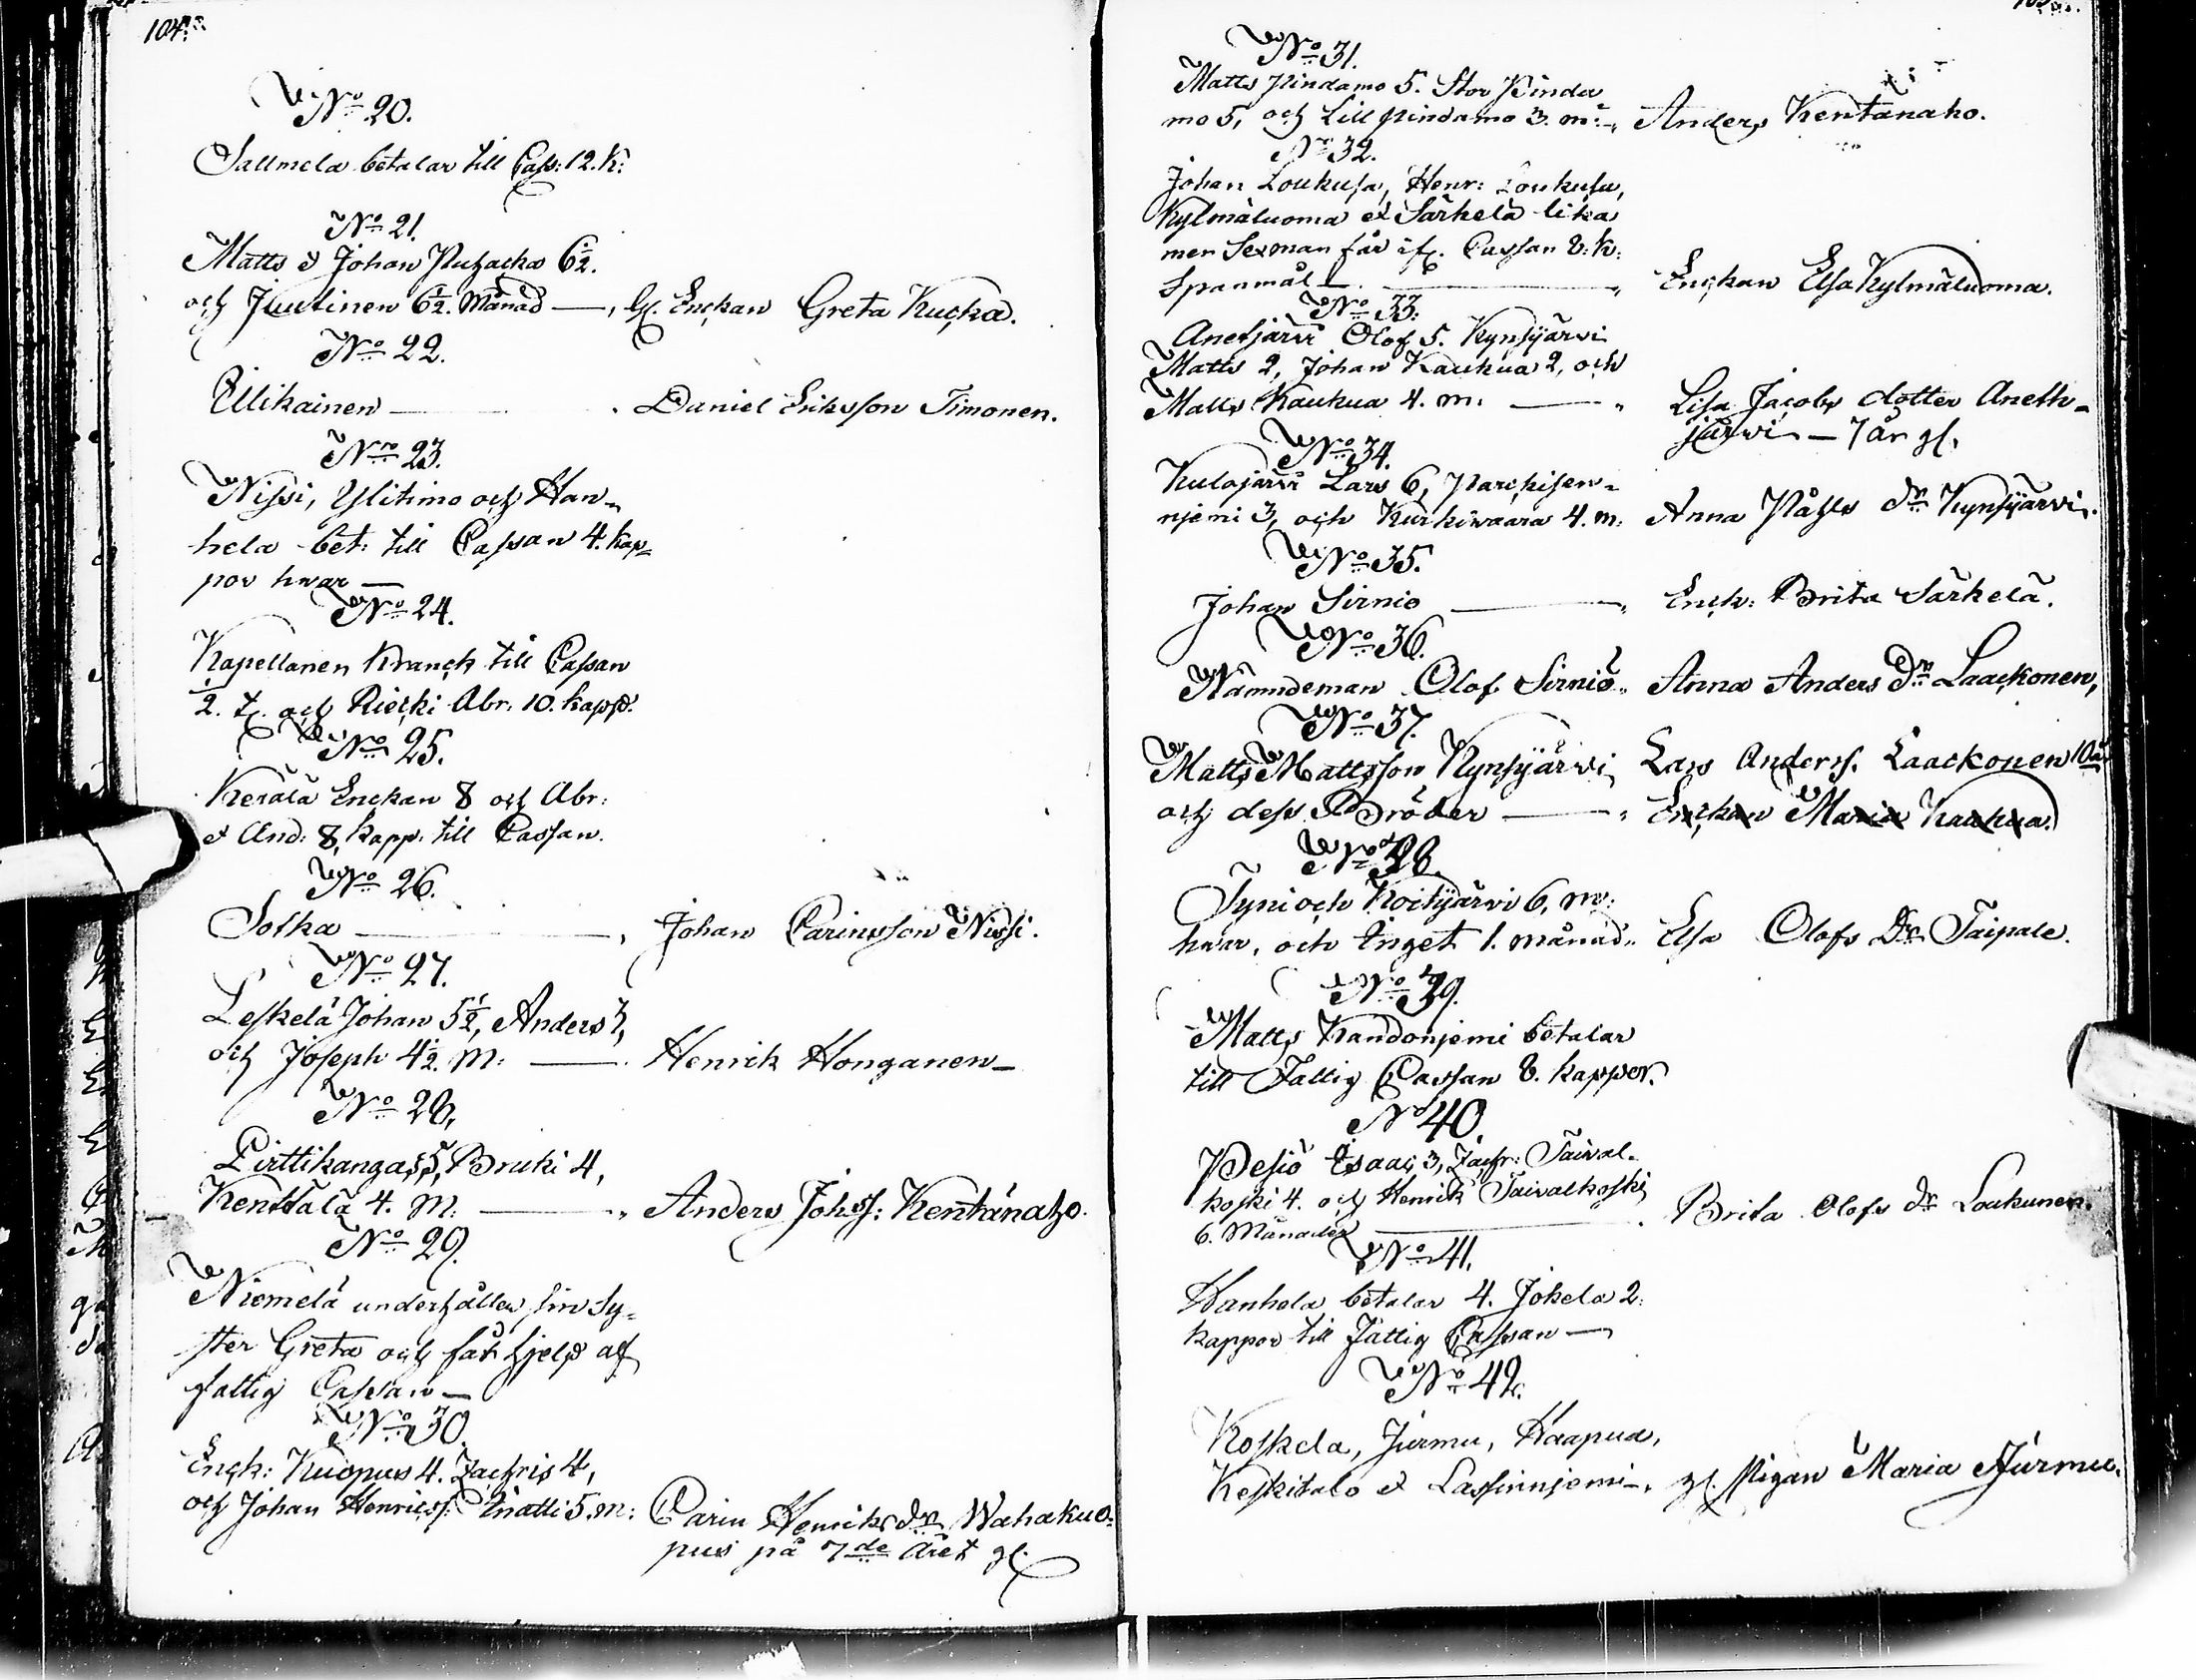 104.
No 20.
Sallmela betalar till Cass: 12. k:
No 21.
Matts & Johan 6½.
och Juutinen 6½. Månad —, Enckan Greta Kucka.
No 22.
Illikainen — Daniel Eriksson Timonen.
No 23.
Nissi, Ylitimo och Han-
hela bet: till Cassan 4. kap-
por hwar —
No 24.
Kapellanen Kranck till Cassan
½. t. och Riecki Abr. 10. kapp:
No 25.
Kerälä Enckan 8 och Abr:
et And: 8, kapp: till Cassan.
No 26.
Sotka — Johan Carinsson Nissi.
No 27.
Leskelä Johan 5½, Anders 3,
och Joseph 4½. M: — Henrik Honganen —
No 28,
Pirttikangas 5, Bruki 4,
Kenttälä 4. M: — Anders Johss: Kentänaho.
No 29.
Niemelä underhåller sin Sy-
ster Greta och får hjelp af
fattig Cassan —
No 30.
Enck: Kuopus 4. Zachris 4,
och Johan Henricss: Inatti 5. m: Carin Henriks dr Wahakuo-
pus på 7de Året gl:
No 31.
Matts Pindamo 5. Stor Pinda
mo 5, och Lill Pindamo 3. m: — Anders Kentänaho.
No 32.
Johan Loukusa, Henr: Loukusa,
Kylmäluoma et Särkelä lika
men Sexman får af Cassan 8. k:
Spanmål — Enckan Elsa Kylmäluoma.
No 33.
Anetjärvi Olof 5. Kynsijärvi
Matts 2, Johan Kaukua 2, och
Matts Kaukua 4. m: — Lisa Jacobs dotter Aneth-
järwi — 7 år gl.
No 34.
Kulojärvi Lars 6, Parckisen-
njemi 3, och Kurkiwaara 4. m: Anna Påhls dr Kynsijärvi.
No 35.
Johan Sirnio — Enck: Brita Särkelä.
No 36.
Nämndeman Olof Sirniö — Anna Anders Dr Laackonen,
No 37.
Matts Mattsson Kynsijärvi Lars Anderss. Laackonen 10 år
och dess Bröder — Enckan Maria Kaukua.
No 38.
Tyni och Koitijärvi 6, m:
hwar, och Inget 1. månad — Elsa Olofs Dr Taipale.
No 39.
Matts Kandonjemi betalar
till Fattig Cassan 8. kappor.
No 40
Pesiö Isaac 3, Zachr: Taival-
koski 4. och Henrik Taivalkoski
6. Månader — Brita Olofs dr Loukunen.
No 41,
Hanhela betalar 4. Jokela 2.
kappor till Fattig Cassan —
No 42.
Koskela, Jurmu, Haapua,
Keskitalo et Lassinnjemi — gl. Pigan Maria Jurmu.